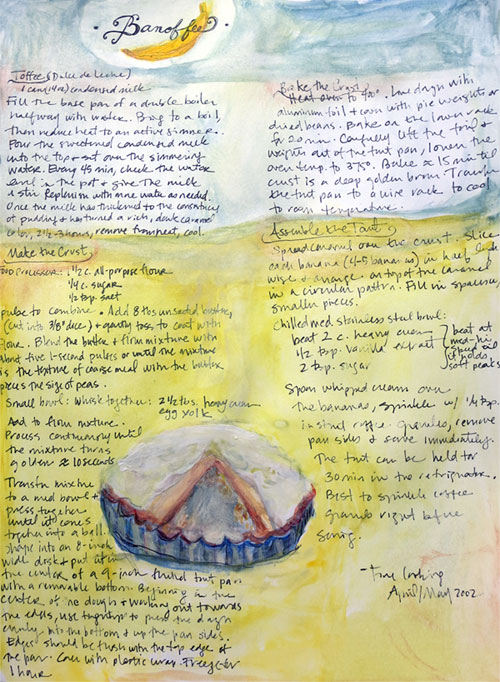 Banoffee
Toffee (Dulce de Leche)
1 can (14 oz) condensed milk
Fill the base pan of a double boiler
halfway with water. Bring to a boil,
then reduce heat to an active simmer.
Pour the sweetened condensed milk
into the top & set over the simmering
water. Every 45 min, check the water
level in the pot & give the milk
a stir. Replenish with more water as needed.
Once the milk has thickened to the consistency
of pudding & has turned a rich, dark caramel
color, 2 1/2-3 hours, remove from heat, cool.
Make the Crust
Food Processor: 1 1/2 c. all-purpose flour
1/4 c. sugar
1/2 tsp salt
pulse to combine. Add 8 tbs unsalted butter,
(cut into 3/8" dice) + quickly toss to coat with
flour. Blend the butter + flour mixture with
about five 1-second pulses or until the mixture
is the texture of coarse meal with the butter
pieces the size of peas.
Small bowl: whisk together: 2 1/2 tbs. heavy cream
egg yolk
Add to flour mixture.
Process continuously until
the mixture turns
golden ≈ 10 seconds
Transfer mixture
to a med bowl &
press together
until it comes
together into a ball.
Shape into an 8-inch
wide disk & put it in
the center of a 9-inch fluted tart pan
with a removable bottom. Beginning in the
center of the dough & working out towards
the edges, use fingertips to press the dough
evenly into the bottom & up the pan sides.
Edges should be flush with the top edge of
the pan. Cover with plastic wrap. Freeze for
1 hour
Bake the Crust
Heat oven to 400°. Line dough with
aluminum foil & cover with pie weights or
dried beans. Bake on the lower rack
for 20 min. Carefully lift the foil &
weights out of the tart pan, lower the
oven temp. to 375°. Bake ≈ 15 min til
crust is a deep golden brown. Transfer
the tart pan to a wire rack to cool
to room temperature.
Assemble the Tart:
Spread caramel over the crust. Slice
each banana (4-5 bananas) in half length
wise & arrange on top of the caramel
in a circular pattern. Fill in spaces w/
smaller pieces.
Chilled med stainless steel bowl:
beat 2 c. heavy cream
1/2 tsp. vanilla extract
2 tsp. sugar
beat at
med-hi
speed til
it holds
soft peaks
Spoon whipped cream over
the bananas, sprinkle w/ 1/4 tsp.
instant coffee granules, remove
pan sides & serve immediately.
The tart can be held for
30 min in the refrigerator.
Best to sprinkle coffee
granules right before
serving.
- Fine Cooking
April/May 2002